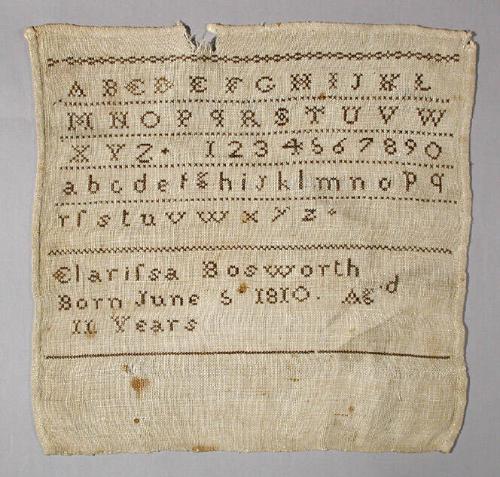 A B C D E F G H I J K L
M N O P Q R S T U V W
X Y Z 1 2 3 4 5 6 7 8 9 0
a b c d e f g h i j k l m n o p q
r ſ s t u v w x y z
Clariſsa Bosworth
Born June 5 1810. Ag'd
11 Years